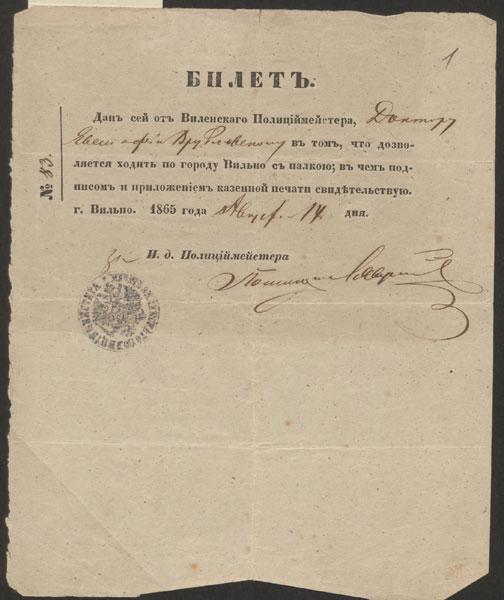 1
БИЛЕТЪ.
Данъ сей отъ Виленскаго Полиціймейстера, Доктору
Врублевскому въ томъ, что дозво-
ляется ходить по городу Вильно съ палкою; въ чемъ под-
писомъ и приложеніемъ казенной печати свидѣтельствую.
г. Вильно. 1865 года Август. 14 дня.
№ 83.
За И. д. Полиціймейстера